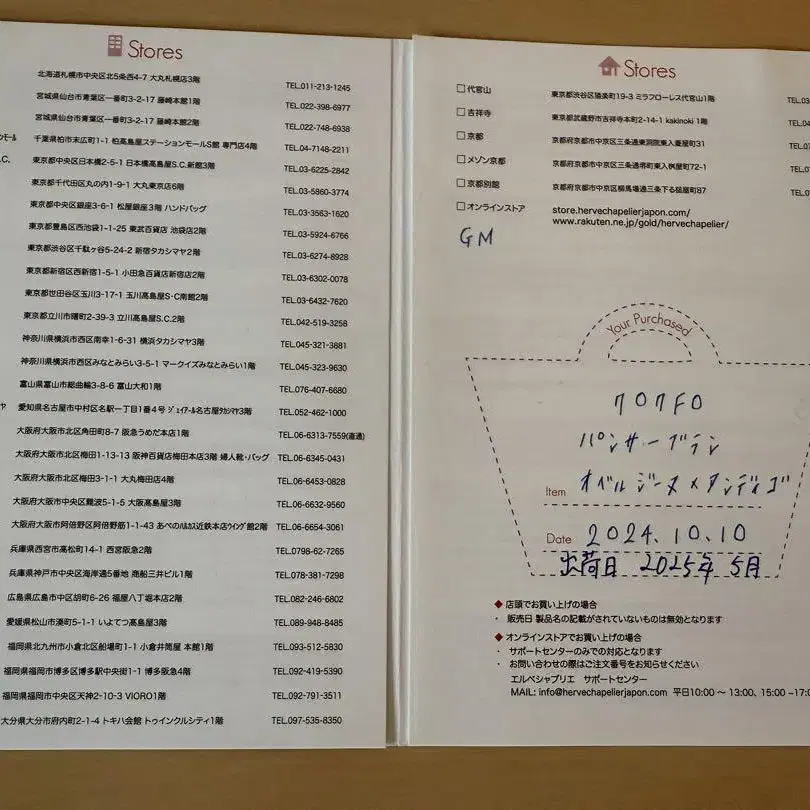 Stores
北海道札幌市中央区北5条西4-7 大丸札幌店3階 TEL.011-213-1245
宮城県仙台市青葉区一番町3-2-17 藤崎本館1階 TEL.022-398-6977
宮城県仙台市青葉区一番町3-2-17 藤崎本館2階 TEL.022-748-6938
千葉県柏市末広町1-1 柏高島屋ステーションモールS館 専門店4階 TEL.04-7148-2211
東京都中央区日本橋2-5-1 日本橋高島屋S.C.新館3階 TEL.03-6225-2842
東京都千代田区丸の内1-9-1 大丸東京店6階 TEL.03-5860-3774
東京都中央区銀座3-6-1 松屋銀座3階 ハンドバッグ TEL.03-3563-1620
東京都豊島区西池袋1-1-25 東武百貨店 池袋店2階 TEL.03-5924-6766
東京都渋谷区千駄ヶ谷5-24-2 新宿タカシマヤ2階 TEL.03-6274-8928
東京都新宿区西新宿1-5-1 小田急百貨店新宿店2階 TEL.03-6302-0078
東京都世田谷区玉川3-17-1 玉川高島屋S・C南館2階 TEL.03-6432-7620
東京都立川市曙町2-39-3 立川高島屋S.C.2階 TEL.042-519-3258
神奈川県横浜市西区南幸1-6-31 横浜タカシマヤ3階 TEL.045-321-3881
神奈川県横浜市西区みなとみらい3-5-1 マークイズみなとみらい1階 TEL.045-323-9630
富山県富山市総曲輪3-8-6 富山大和1階 TEL.076-407-6680
愛知県名古屋市中村区名駅一丁目1番4号 ジェイアール名古屋タカシマヤ3階 TEL.052-462-1000
大阪府大阪市北区角田町8-7 阪急うめだ本店1階 TEL.06-6313-7559(直通)
大阪府大阪市北区梅田1-13-13 阪神百貨店梅田本店3階 婦人靴・バッグ TEL.06-6345-0431
大阪府大阪市北区梅田3-1-1 大丸梅田店4階 TEL.06-6453-0828
大阪府大阪市中央区難波5-1-5 大阪高島屋3階 TEL.06-6632-9560
大阪府大阪市阿倍野区阿倍野筋1-1-43 あべのハルカス近鉄本店ウイング館2階 TEL.06-6654-3061
兵庫県西宮市高松町14-1 西宮阪急2階 TEL.0798-62-7265
兵庫県神戸市中央区海岸通5番地 商船三井ビル1階 TEL.078-381-7298
広島県広島市中区胡町6-26 福屋八丁堀本店2階 TEL.082-246-6802
愛媛県松山市湊町5-1-1 いよてつ高島屋3階 TEL.089-948-8485
福岡県北九州市小倉北区船場町1-1 小倉井筒屋 本館1階 TEL.093-512-5830
福岡県福岡市博多区博多駅中央街1-1 博多阪急4階 TEL.092-419-5390
福岡県福岡市中央区天神2-10-3 VIORO1階 TEL.092-791-3511
大分県大分市府内町2-1-4 トキハ会館 トゥインクルシティ1階 TEL.097-535-8350
Stores
代官山 東京都渋谷区猿楽町19-3 ミラフローレス代官山1階 TEL.03
吉祥寺 東京都武蔵野市吉祥寺本町2-14-1 kakinoki 1階 TEL.04
京都 京都府京都市中京区三条通東洞院東入菱屋町31
メゾン京都 京都府京都市中京区三条通堺町東入桝屋町72-1
京都別館 京都府京都市中京区柳馬場通三条下る槌屋町87
オンラインストア store.hervechapelierjapon.com/
www.rakuten.ne.jp/gold/hervechapelier/
GM
Your Purchased
707FO
パンサーブラン
Item オベルジーヌ×インディゴ
Date 2024.10.10
出荷日 2025年 5月
◆ 店頭でお買い上げの場合
・ 販売日 製品名の記載がされていないものは無効となります
◆ オンラインストアでお買い上げの場合
・ サポートセンターのみでの対応となります
・ お問い合わせの際はご注文番号をお知らせください
エルベシャプリエ サポートセンター
MAIL: info@hervechapelierjapon.com 平日10:00 ～ 13:00、15:00 ~17:0